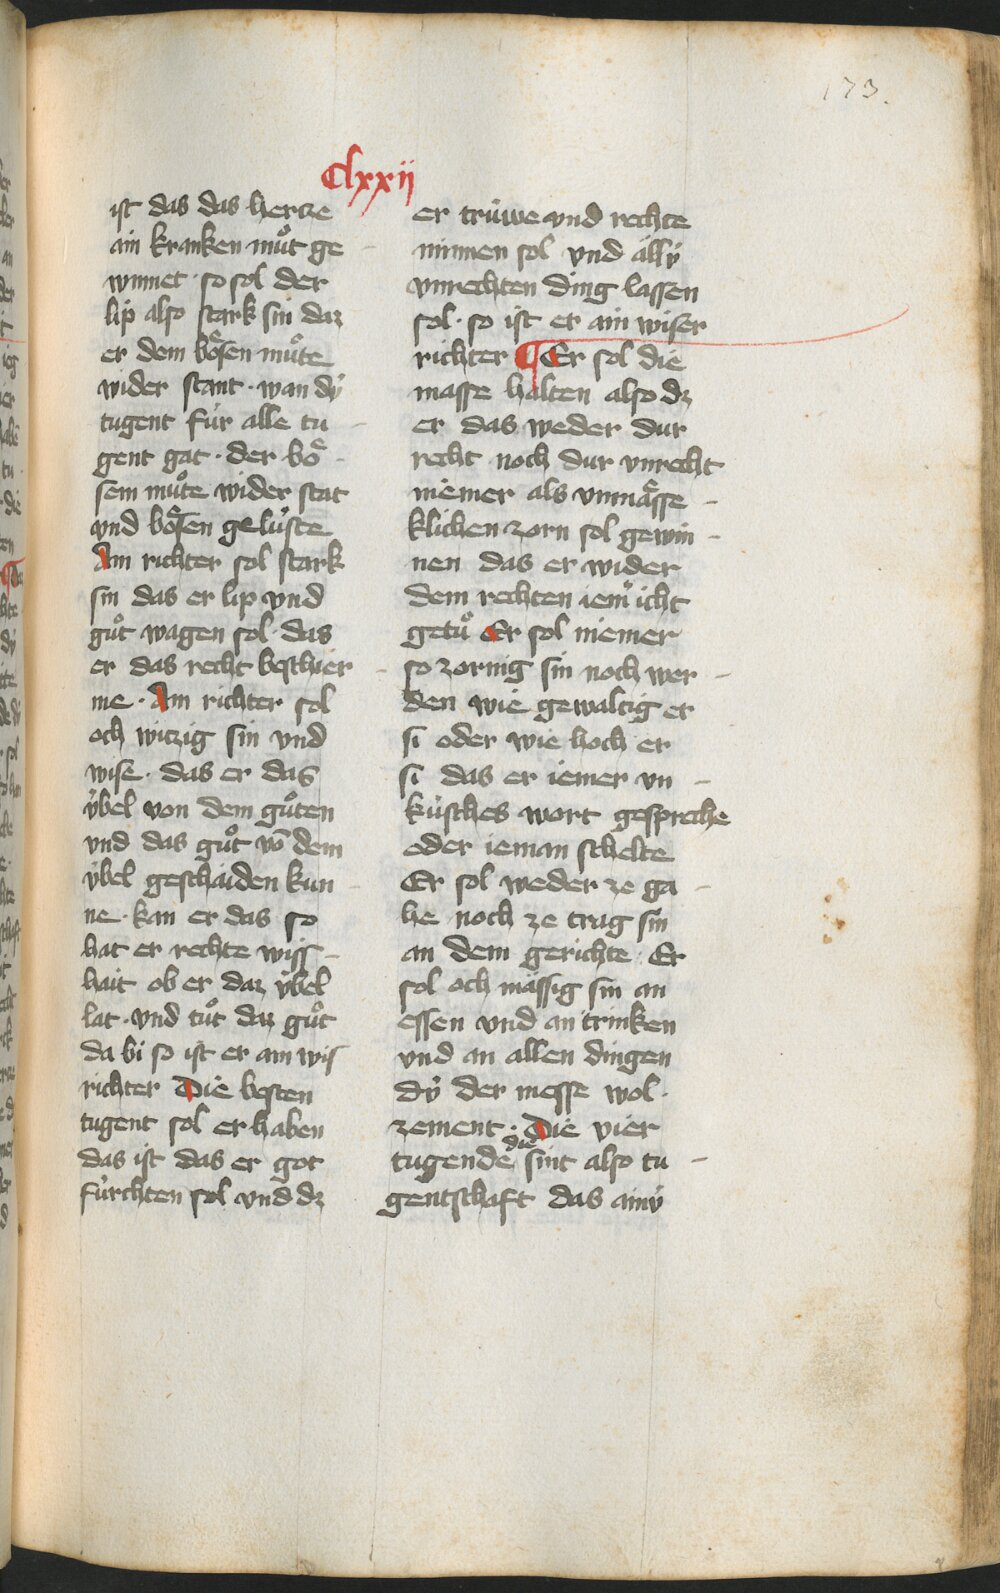 173.
Clxxij
ist das das hertze
ain kranken muͦt ge
winnet · so sol der
lip also stark sin daz
er dem boͤsen muͦte
wider stant · wan dý
tugent fúr alle tu
gent gat · der boͤ
sem muͦte wider stat
vnd boͤsen gelúste
Ain richter sol stark
sin das er lip vnd
guͦt wagen sol das
er das recht beschier
me · Ain richter sol
och witzig sin vnd
wise · das er das
v́bel von dem guͦten
vnd das guͦt võ dem
v́bel geschaiden kun
ne · kan er das so
hat er rechte wiss
hait ob er daz v́bel
lat · vnd tuͦt daz guͦt
da bi so ist er ain wis
richter Die besten
tugent sol er haben
das ist das er got
fúrchten sol vnd dz
er trúwe vnd rechte
minnen sol vnd állý
vnrechten ding lassen
sol · so ist er ain wiser
richter ¶ Er sol die
masse halten also dz
er das weder dur
recht noch dur vnrecht
niemer als vnmaͤsse
klichen zorn sol gewin
nen das er wider
dem rechten iemͥ icht
getuͦ Er sol niemer
so zornig sin noch wer
den wie gewaltig er
si oder wie hoch er
si das er iemer vn
kúsches wort gespreche
oder ieman schelte
Er sol weder ze ga
he noch ze trag sin
an dem gerichte · Er
sol och mássig sin an
essen vnd an trinken
vnd an allen dingen
dý der messe wol
zement · Die vier
tugende die sint also tu
gentschaft das ainý